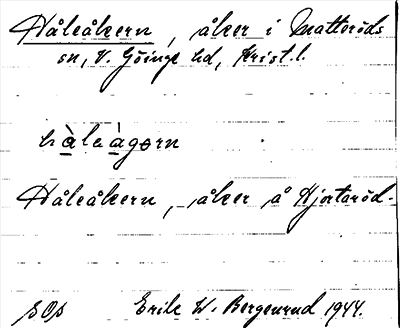 Håleåkern, åker i Matteröds
sn, V. Göinge hd, Krist. l.
hàleàgørn
Håleåkern, åker å Hjortaröd.
SOs Erik W. Bergenrud 1944.